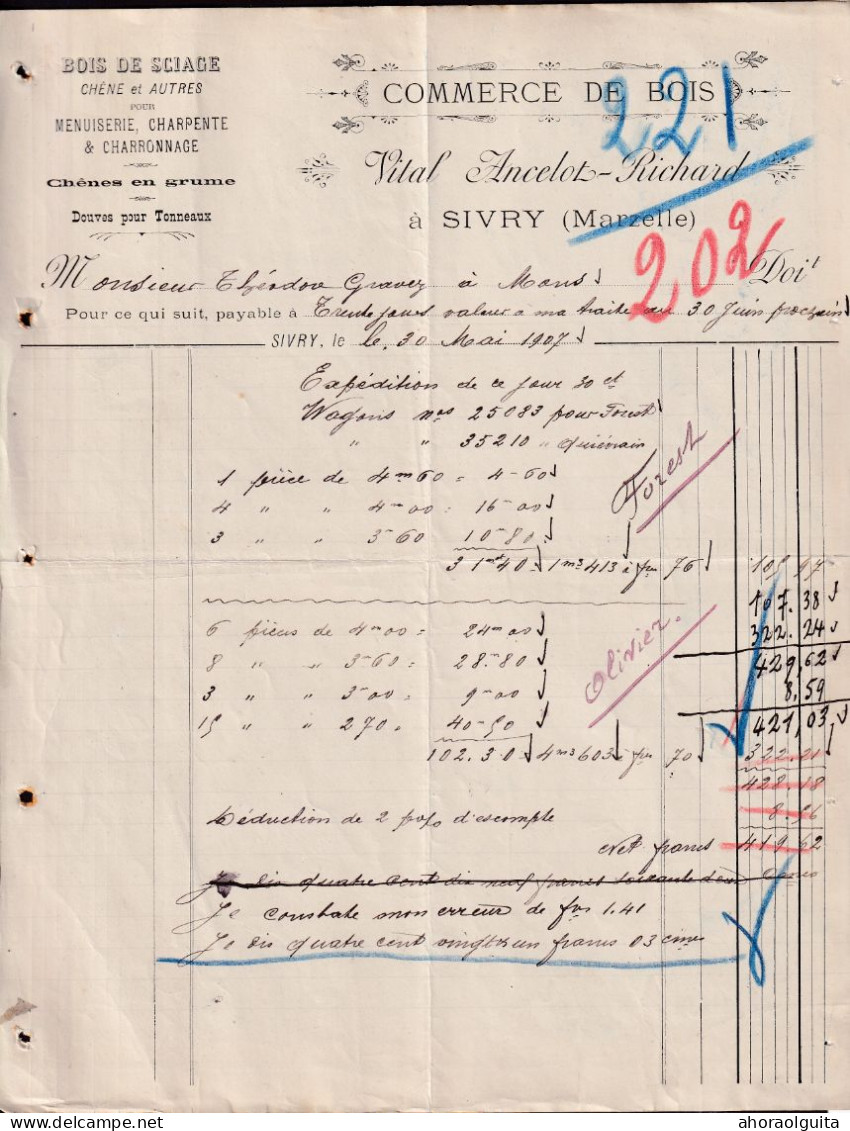 BOIS DE SCIAGE
CHÊNE et AUTRES
POUR
MENUISERIE, CHARPENTE
& CHARRONNAGE
Chênes en grume
Douves pour Tonneaux
COMMERCE DE BOIS
221
Vital Ancelot-Richard
à SIVRY (Marzelle)
202
Monsieur Théodor Gravez à Mons Doit
Pour ce qui suit, payable à Trente jours valeur a ma traite au 30 Juin prochain
SIVRY, le le, 30 Mai 1907
Expédition de ce jour 30 ct
Wagons nos 25083 pour Forest
" " 35210 " Quiévrain
1 pièce de 4m60 = 4-60
4 " " 4-00 = 16-00
3 " " 3-60 10-80
Forest
31mct40 = 1m3 413 à frs 76 105 97
107.38
322.24
6 pièces de 4m00 = 24m00
429,62
8 " " 3-60 = 28-80
8.59
3 " " 3-00 = 9-00
421,03
15 " " 270 = 40-50
Olivier.
102.30 = 4m3 603 à frs 70 322.21
428.18
Déduction de 2 p% d'escompte 8.56
Net francs 419 62
Je dis quatre cent dix neuf francs soixante deux cmes
Je constate mon erreur de frs 1.41
Je dis quatre cent vingt un francs 03 cmes
delcampe.net
ahoraolguita